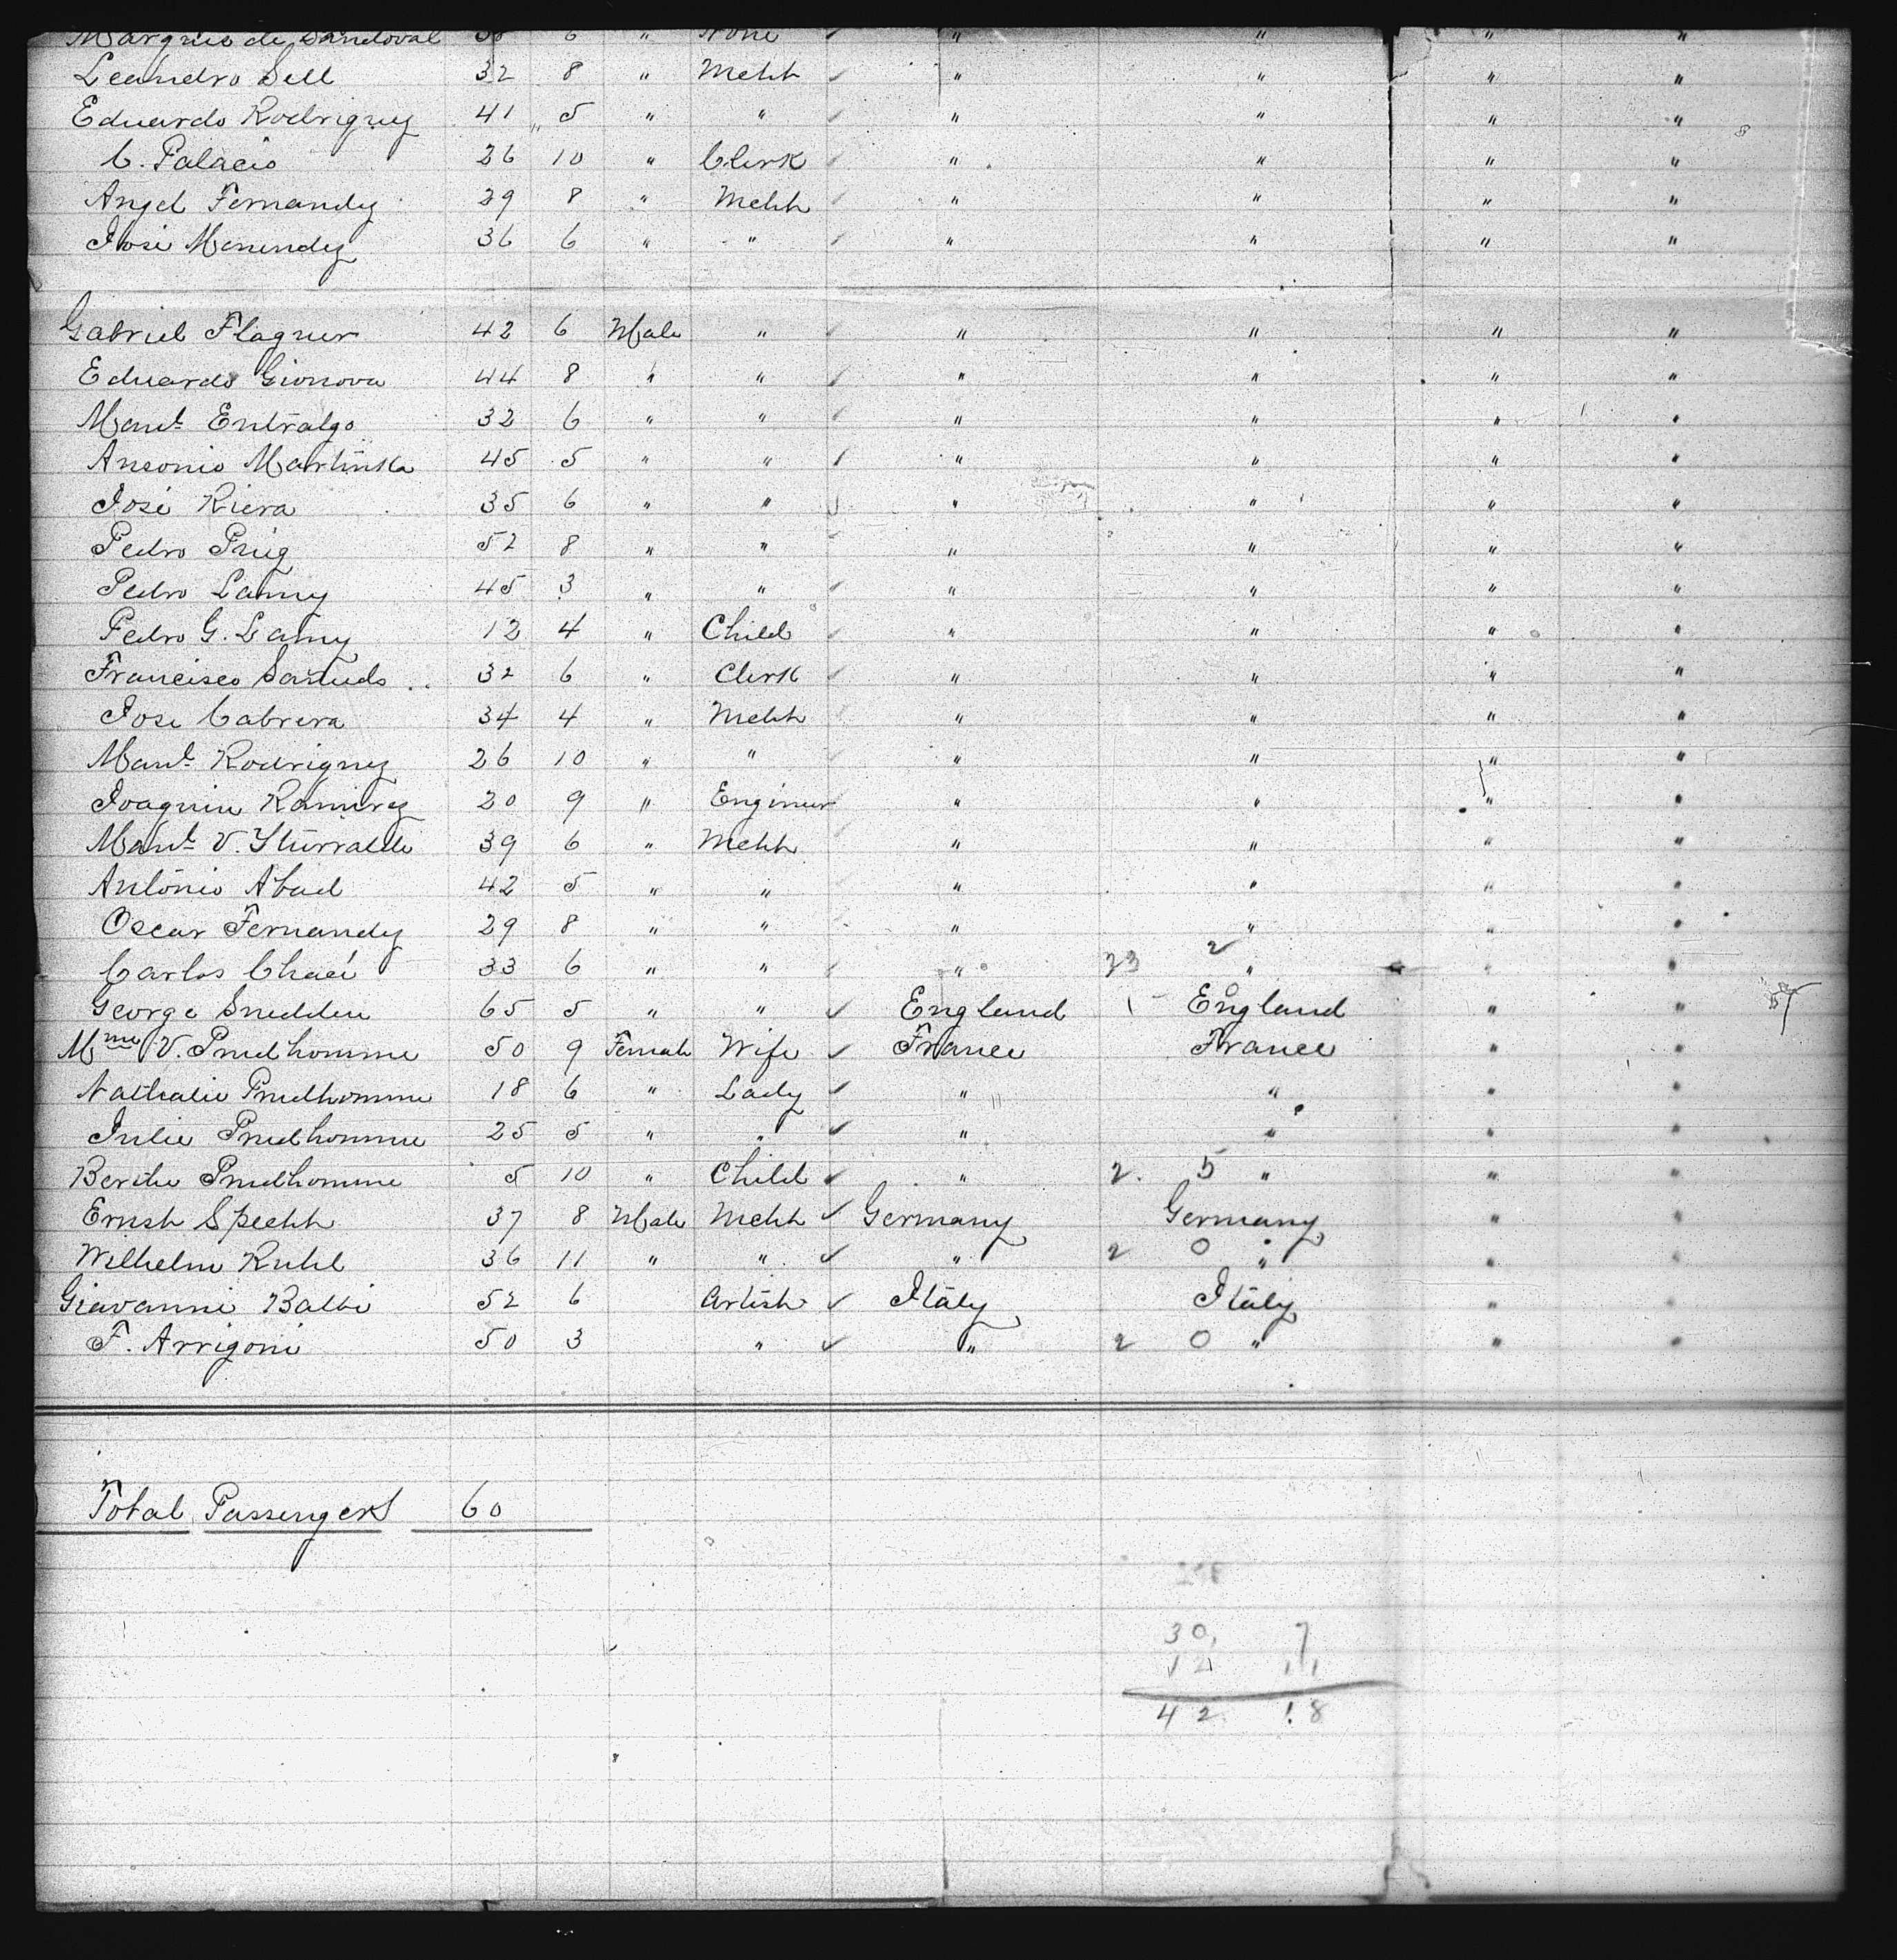 Marquis de Sandoval 6 " None " " " "
Leandro Sell 32 8 " Mcht " " " "
Eduardo Rodriguez 41 5 " " " " " "
C. Palacio 26 10 " Clerk " " " "
Angel Fernandez 29 8 " Mcht " " " "
José Menendez 36 6 " " " " " "
Gabriel Flaquer 42 6 Male " " " " "
Eduardo Gionova 44 8 " " " " " "
Manl. Entralgo 32 6 " " " " " "
Antonio 45 5 " " " " " "
José Riera 35 6 " " " " " "
Pedro Puig 52 8 " " " " " "
Pedro Lamy 45 3 " " " " " "
Pedro G. Lamy 12 4 " Child " " " "
Francisco 32 6 " Clerk " " " "
Jose Cabrera 34 4 " Mcht " " " "
Manl. Rodriguez 26 10 " " " " " "
Joaquin Ramirez 20 9 " Engineer " " " "
Manl. V. Yturralde 39 6 " Mcht " " " "
Antonio Abad 42 5 " " " " " "
Oscar Fernandez 29 8 " " " " " "
Carlos 33 6 " " " 23 2 " " "
George Snedden 65 5 " " England 1 England " "
Mme V. Prudhomme 50 9 Female Wife France France " "
Nathalie Prudhomme 18 6 " Lady " " " "
Julie Prudhomme 25 5 " " " " " "
Berthe Prudhomme 5 10 " Child " 2. 5 " " "
Ernst Specht 37 8 Male Mcht Germany Germany " "
Wilhelm Ruhl 36 11 " " " 2 0 " " "
Giavanni Balbi 52 6 Artist Italy Italy " "
F. Arrigoni 50 3 " " 2 0 " " "
Total Passengers 60
30 7
12 11
42 18